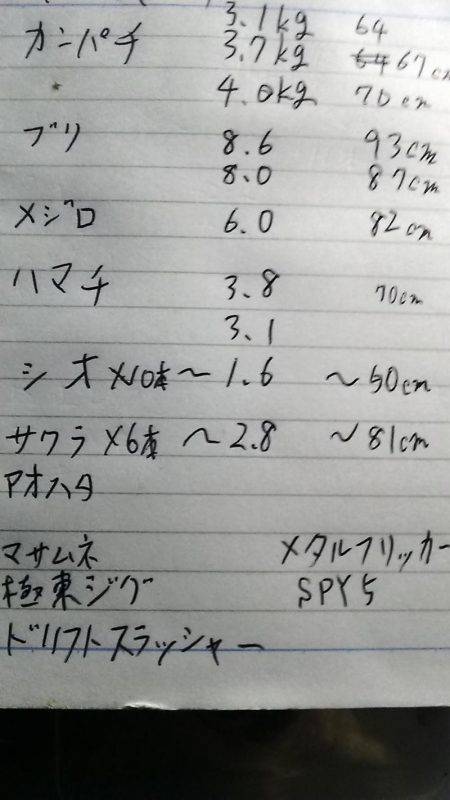 3.1kg 64
カンパチ 3.7kg 64 67cm
4.0kg 70cm
ブリ 8.6 93cm
8.0 87cm
メジロ 6.0 82cm
ハマチ 3.8 70cm
3.1
シオ×10本 〜1.6 〜50cm
サワラ×6本 〜2.8 〜81cm
アオハタ
マサムネ メタルフリッカー
極東ジグ SPY5
ドリフトスラッシャー